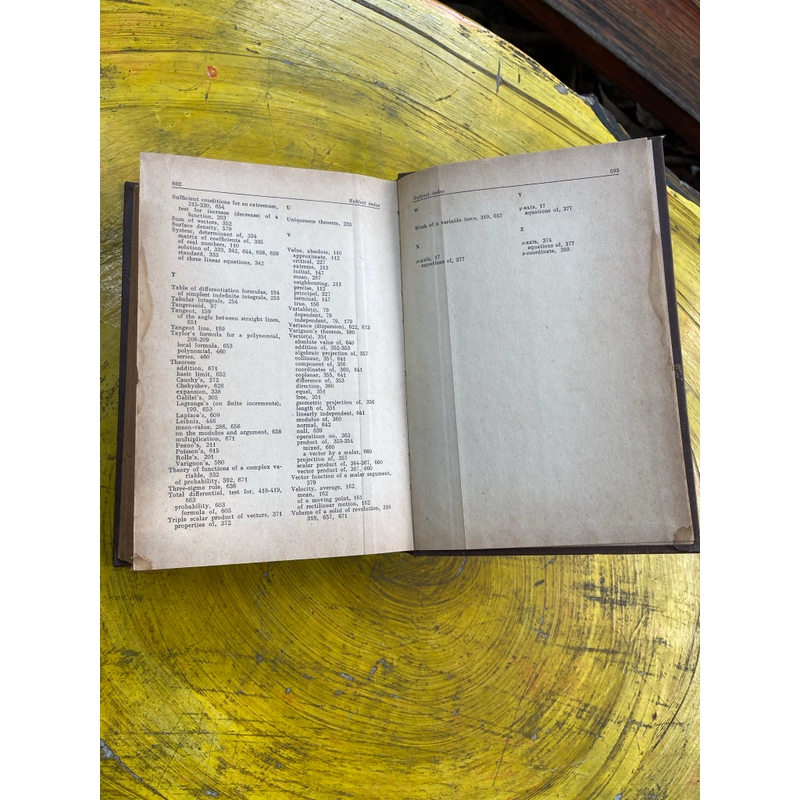 692
Subject index
Sufficient conditions for an extremum,
215-220, 654
test for increase (decrease) of a
function, 203
Sum of vectors, 352
Surface density, 579
System, determinant of, 334
matrix of coefficients of, 335
of real numbers, 110
solution of, 333, 342, 644, 658, 659
standard, 333
of three linear equations, 343
T
Table of differentiation formulas, 194
of simplest indefinite integrals, 253
Tabular integrals, 254
Tangensoid, 97
Tangent, 159
of the angle between straight lines,
651
Tangent line, 159
Taylor's formula for a polynomial,
208-209
local formula, 653
polynomial, 460
series, 460
Theorem
addition, 671
basic limit, 652
Cauchy's, 272
Chebyshev, 626
expansion, 338
Galilei's, 305
Lagrange's (on finite increments),
199, 653
Laplace's, 609
Leibniz, 446
mean-value, 286, 656
on the modulus and argument, 658
multiplication, 671
Peano's, 211
Poisson's, 615
Rolle's, 201
Varignon's, 580
Theory of functions of a complex va-
riable, 332
of probability, 592, 671
Three-sigma rule, 636
Total differential, test for, 418-419,
663
probability, 603
formula of, 603
Triple scalar product of vectors, 371
properties of, 372
U
Uniqueness theorem, 233
V
Value, absolute, 110
approximate, 112
critical, 227
extreme, 213
initial, 147
mean, 287
neighbouring, 213
precise, 112
principal, 327
terminal, 147
true, 156
Variable(s), 79
dependent, 79
independent, 79, 179
Variance (dispersion), 622, 673
Varignon's theorem, 580
Vector(s), 351
absolute value of, 640
addition of, 352-353
algebraic projection of, 357
collinear, 354, 641
component of, 356
coordinates of, 360, 641
coplanar, 355, 641
difference of, 353
direction, 380
equal, 351
free, 351
geometric projection of, 356
length of, 351
linearly independent, 641
modulus of, 360
normal, 642
null, 639
operations on, 363
product of, 353-354
mixed, 660
a vector by a scalar, 660
projection of, 357
scalar product of, 364-367, 660
vector product of, 367, 660
Vector function of a scalar argument,
379
Velocity, average, 162
mean, 162
of a moving point, 161
of rectilinear motion, 162
Volume of a solid of revolution, 301
318, 657, 671
Subject index
693
W
Work of a variable force, 319, 657
X
x-axis, 17
equations of, 377
Y
y-axis, 17
equations of, 377
Z
z-axis, 374
equations of, 377
z-coordinate, 359